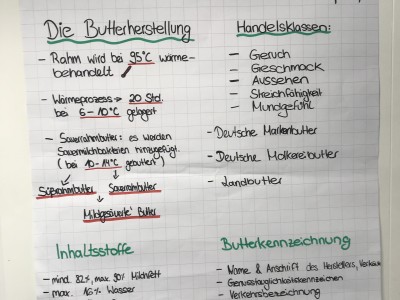 Die Butterherstellung
- Rahm wird bei 95°C wärme-
behandelt
- Wärmeprozess => 20 Std.
bei 6-10°C gelagert
- Sauerrahmbutter: es werden
Sauermilchbakterien hinzugefügt.
(bei 10-14°C gebuttert)
Süßrahmbutter Sauerrahmbutter
Mildgesäuerte Butter
Handelsklassen:
- Geruch
- Geschmack
- Aussehen
- Streichfähigkeit
- Mundgefühl
- Deutsche Markenbutter
- Deutsche Molkereibutter
- Landbutter
Inhaltsstoffe
- mind. 82%, max. 90% Milchfett
- max. 16% Wasser
Butterkennzeichnung
- Name & Anschrift des Herstellers,
- Genusstauglichkeitskennzeichen
- Verkehrsbezeichnung